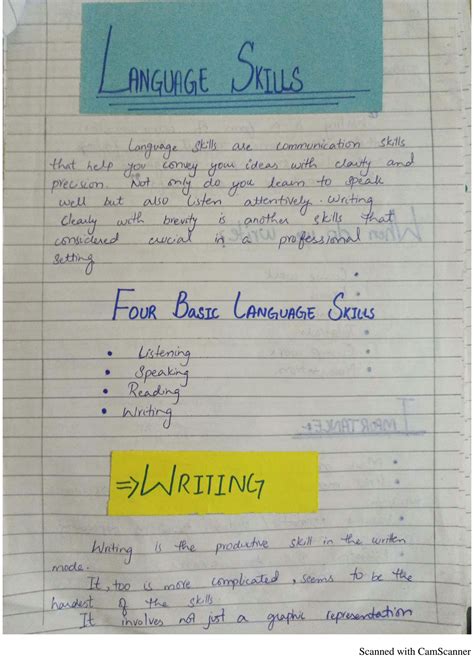 LANGUAGE SKILLS
Language skills are communication skills
that help you convey your ideas with clarity and
precision. Not only do you learn to speak
well but also listen attentively. Writing
clearly with brevity is another skills that
considered crucial in a professional
setting
FOUR BASIC LANGUAGE SKILLS
• Listening
• Speaking
• Reading
• Writing
⇒WRITING
Writing is the productive skill in the written
mode.
It, too is more complicated, seems to be the
hardest of the skills
It involves not just a graphic representation
Scanned with CamScanner